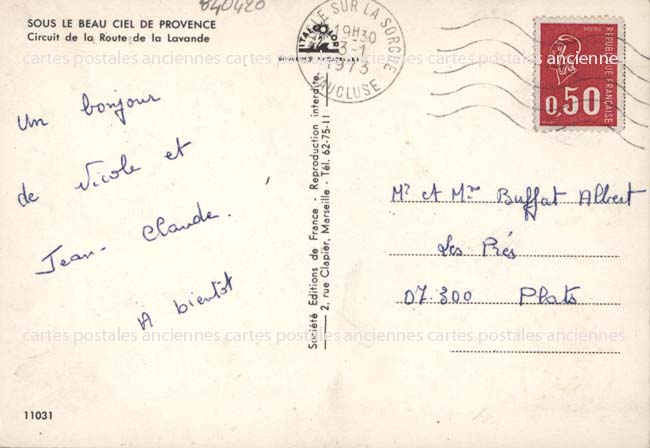 SOUS LE BEAU CIEL DE PROVENCE
Circuit de la Route de la Lavande
840420
ITALCOLOR
L'ISLE SUR LA SORGUE
19H30
3-1
1973
VAUCLUSE
POSTES
REPUBLIQUE FRANÇAISE
0,50
Un bonjour
de Nicole et
Jean-Claude.
A bientôt
Société Editions de France - Reproduction interdite.
2, rue Clapier, Marseille - Tél. 62-75-11
Mr et Mme Buffat Albert
Les Prés
07.300 Plats
cartes postales anciennes cartes postales anciennes cartes postales anciennes
11031